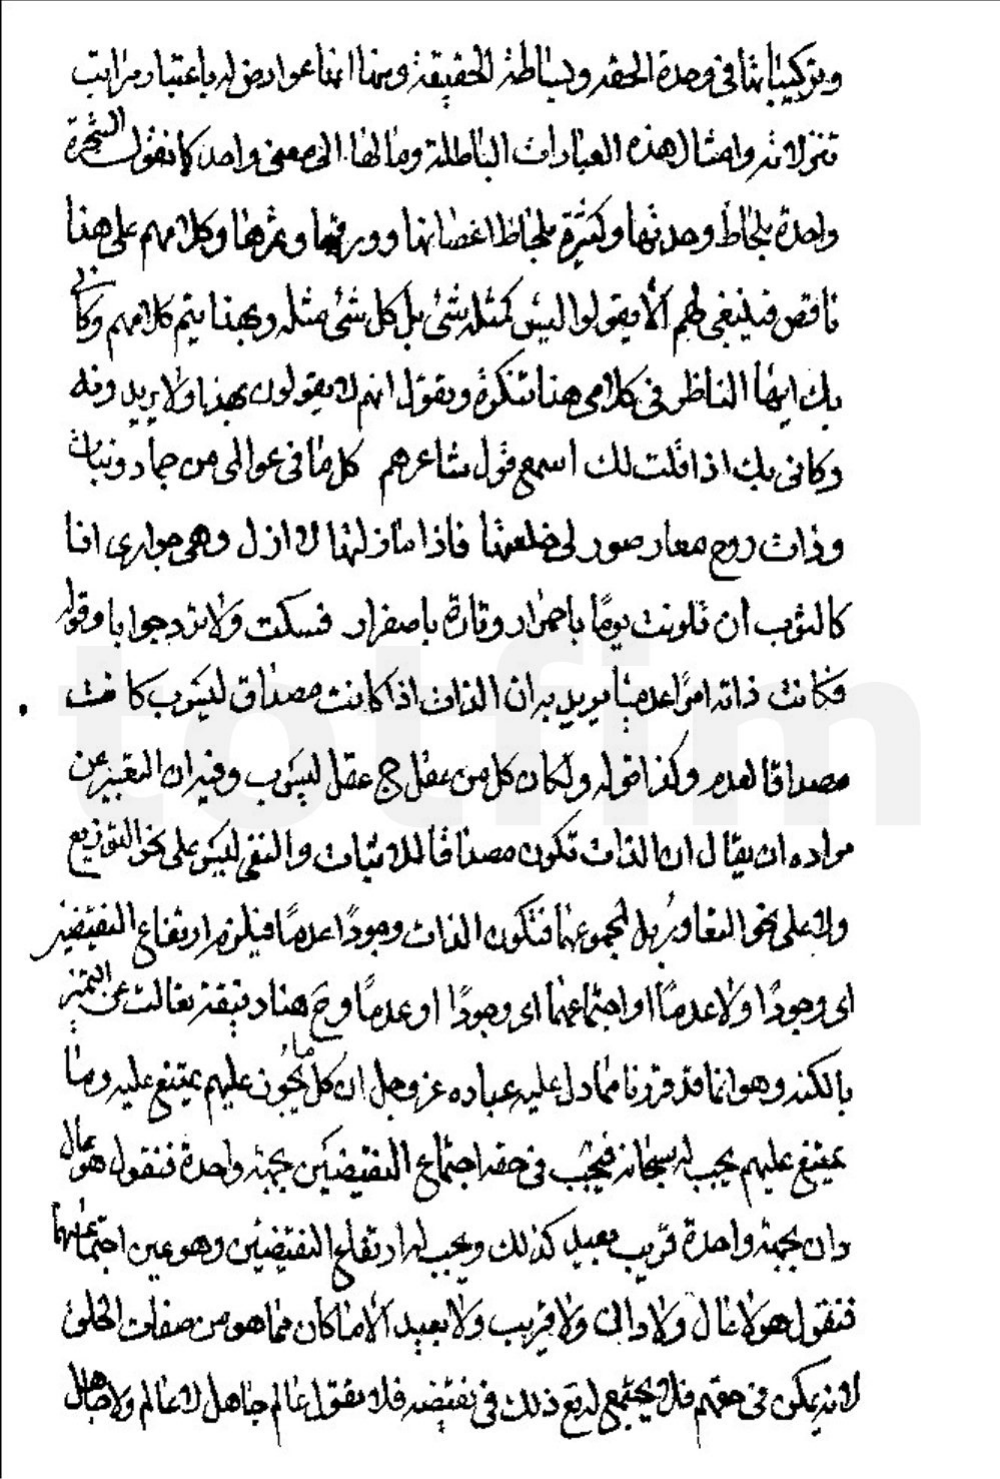 وتركيباتها في وحدة الحقه وبساطة الحقيقة ومنها انها عوارض له باعتبار مراتب
تنزلاته وامثال هذه العبارات الباطلة ومالها الى معنى واحد كما نقول الشجرة
واحدة بلحاظ وحدتها وكثيرة بلحاظ اغصانها وورقها وثمرها وكلامهم على هذا
ناقص فينبغي لهم ألا يقولوا ليس كمثله شئ بل كل شئ مثله وبهذا يتم كلامهم وكأني
بك ايها الناظر في كلامي هذا تنكره وتقول انهم لا يقولون بهذا ولا يريدونه
وكاني بك اذا قلت لك اسمع قول شاعرهم كل ما في عوالمي من جماد ونبات
وذات روح معار صور لي خلعتها فاذا ما زلتها لا ازل وهي جواري انا
كالثوب ان تلونت يومًا باحمرار وتارة باصفرار فسكت ولا ترد جوابا وقوله
فكانت ذاته امرًا عدميا يريد به ان الذات اذا كانت مصداق ليس ب كانت
مصداقا لعدم وكذا قوله ولكان كل من عقل ج عقل ليس ب وفيه ان التعبير عن
مراده ان يقال ان الذات تكون مصداقا للاثبات والنفي ليس على نحو التوزيع
ولا على نحو التعاور بل لمجموعهما فتكون الذات وجودًا عدمًا فيلزم ارتفاع النقيضين
اى وجودًا ولا عدمًا او اجتماعهما اى وجودًا او عدمًا وح هنا دقيقة تعالت عن التميز
بالكنه وهو انا قد قررنا مما دل عليه عباده عز وجل ان كل ما يجوز عليهم يمتنع عليه وما
يمتنع عليهم يجب له سبحانه فيجب في حقه اجتماع النقيضين بجهة واحدة فنقول هو عال
دان بجهة واحدة قريب بعيد كذلك ويجب له ارتفاع النقيضين وهو عين اجتماعهما
فنقول هو لا عال ولا دان ولا قريب ولا بعيد الا ما كان مما هو من صفات الخلق
لانه يمكن في حقهم فلا يجتمع له مع ذلك في نقيضه فلا نقول عالم جاهل لا عالم ولا جاهل
totfim